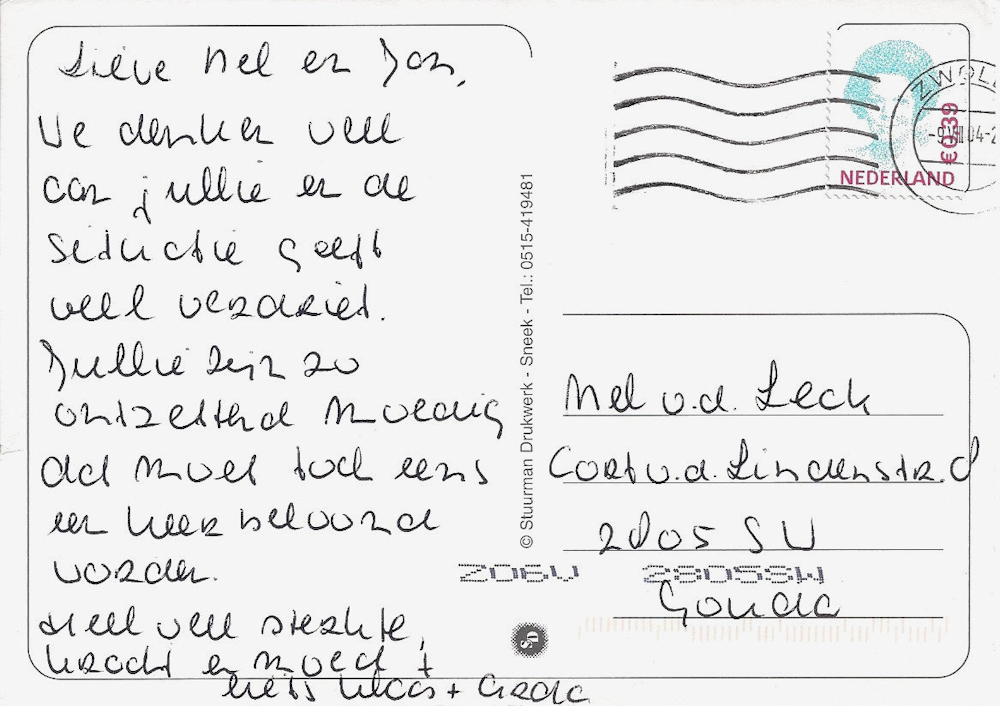 Lieve Nel en Jan,
We denken veel
aan jullie en de
situatie geeft
veel verdriet.
Jullie zijn zo
ontzettend moedig
dat moet toch eens
een keer beloond
worden.
Heel veel sterkte,
kracht en moed +
liefs Kees + Greda
© Stuurman Drukwerk - Sneek - Tel.: 0515-419481
ZWOL
-9 VIII 04-2
€0,39
NEDERLAND
Nel v.d. Leck
Cort v.d. Lindenstr. 8
2805 SW
ZO6V 2805SW
Gouda
SD